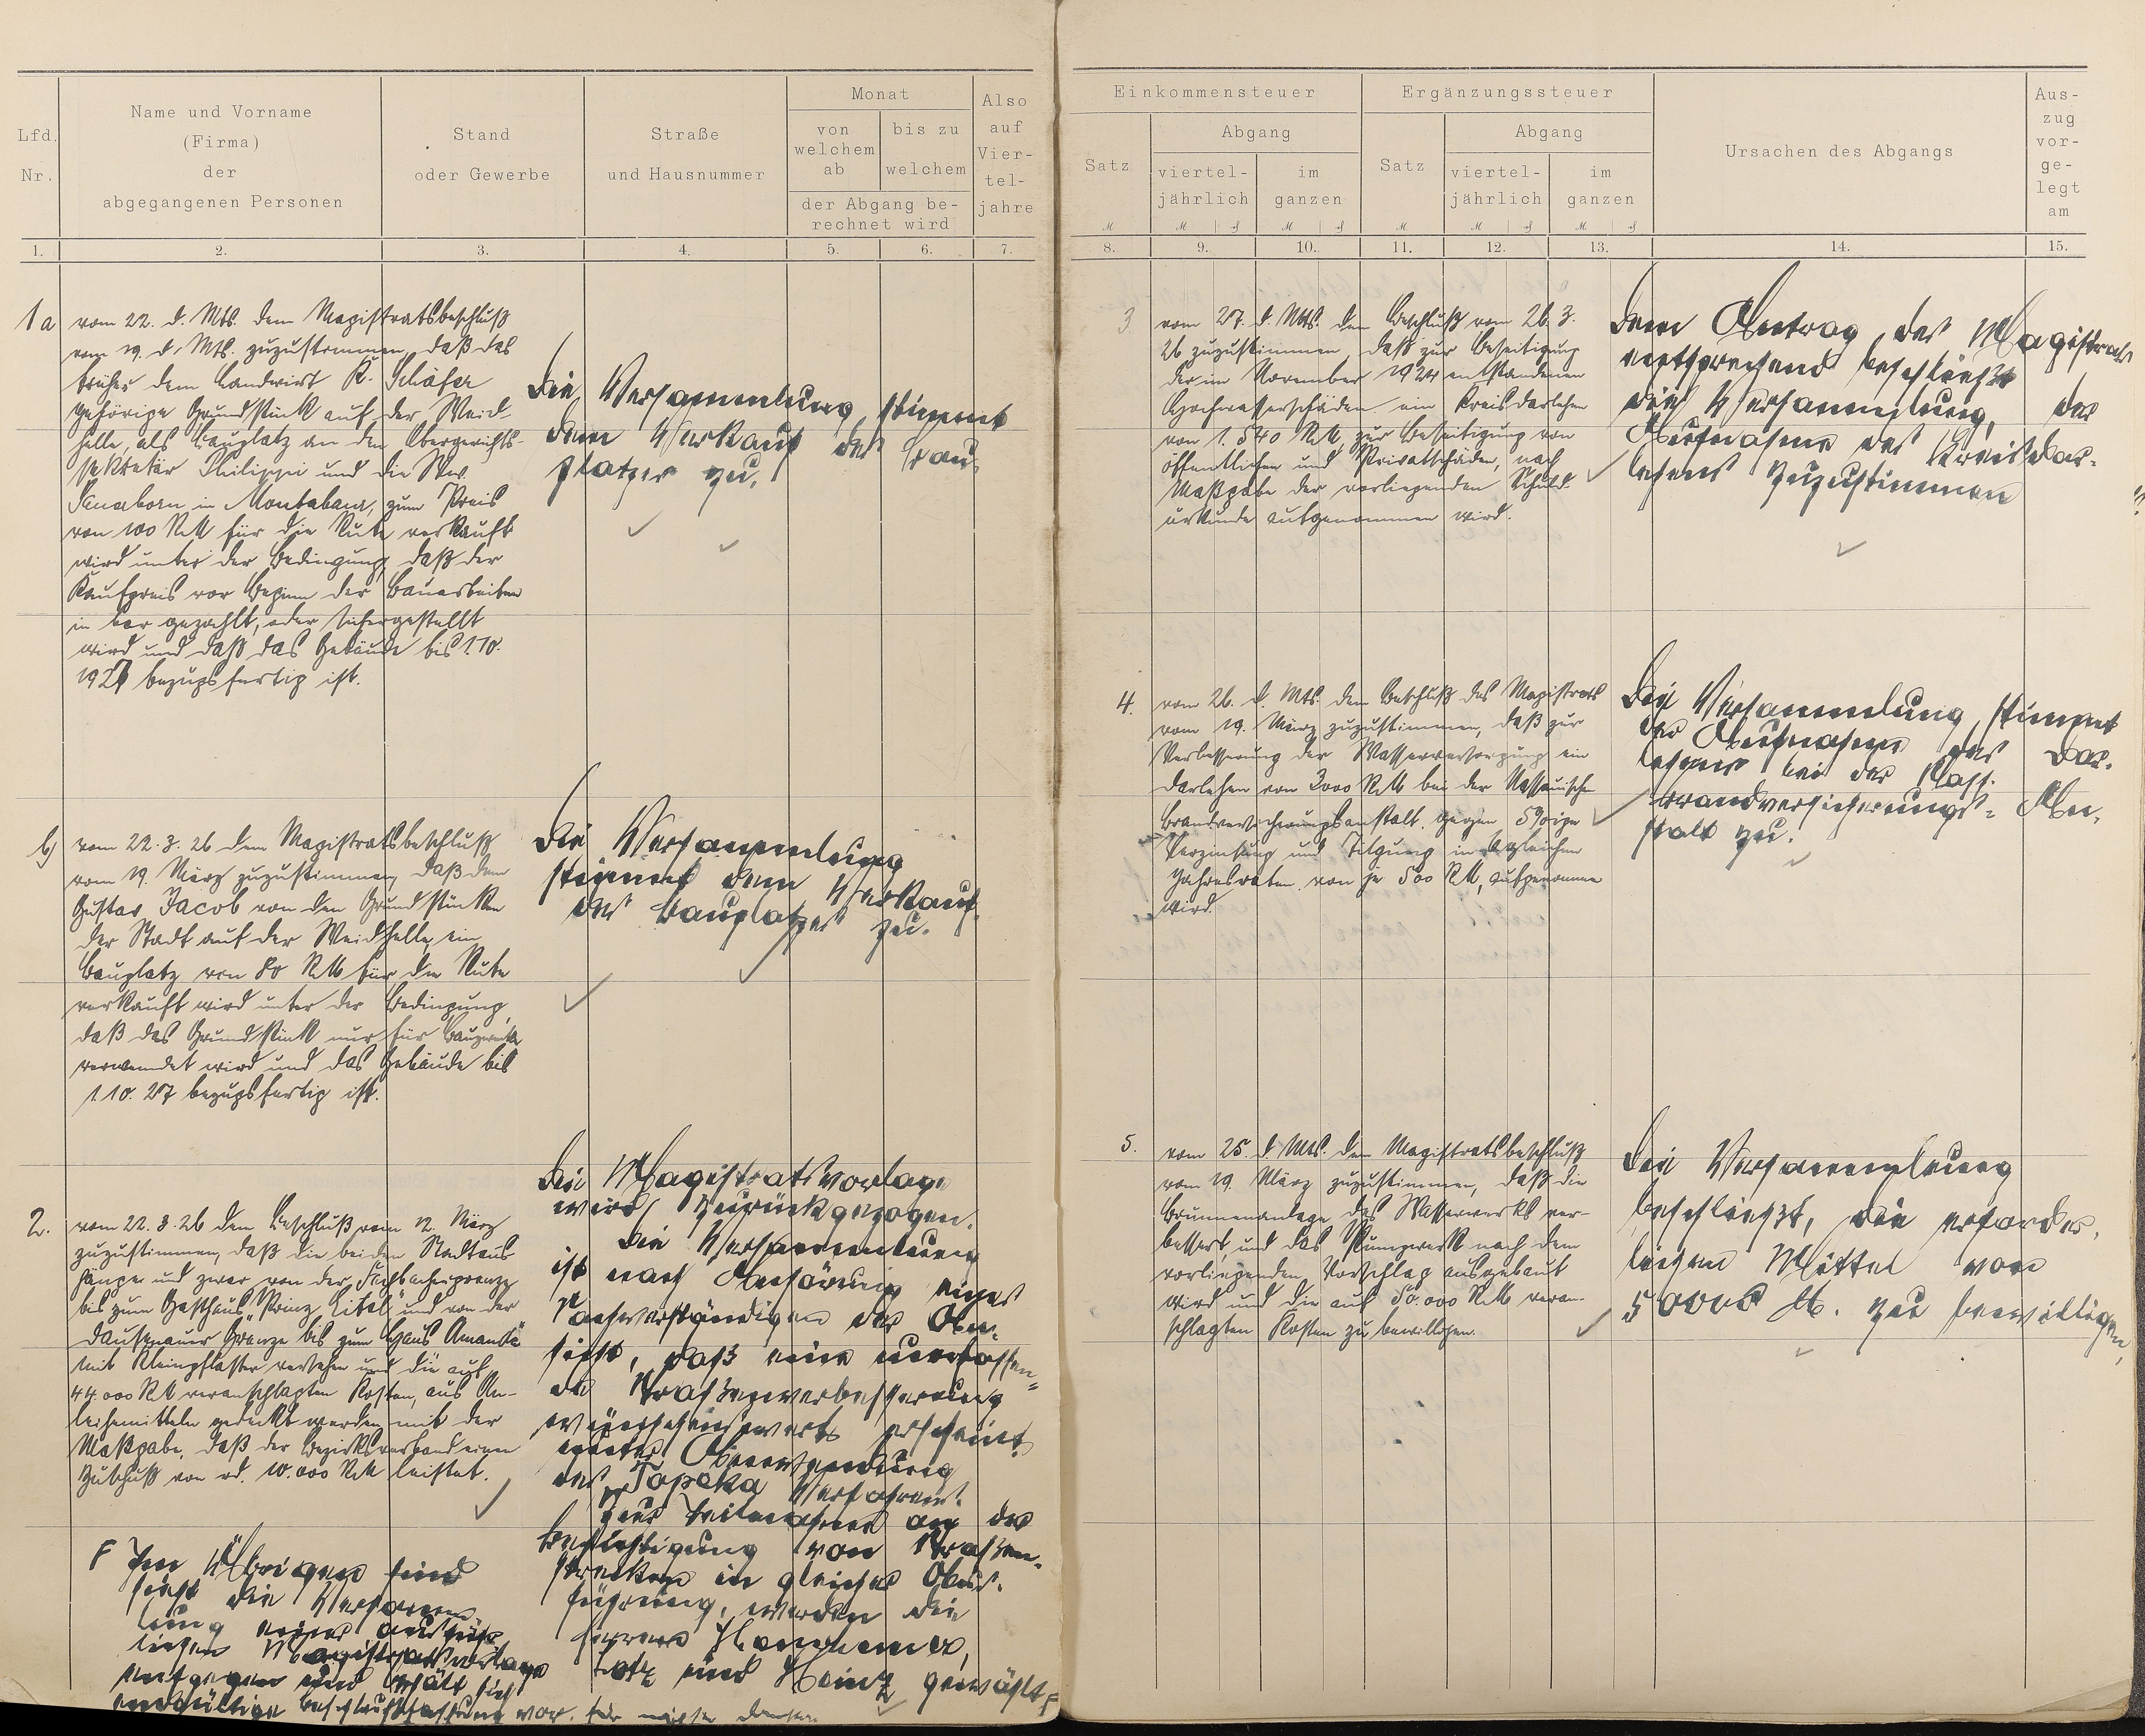 Lfd.
Nr.
Name und Vorname
(Firma)
der
abgegangenen Personen
Stand
oder Gewerbe
Straße
und Hausnummer
Monat
von
welchem
ab
bis zu
welchem
der Abgang be-
rechnet wird
Also
auf
Vier-
tel-
jahre
1. 2. 3. 4. 5. 6. 7.
1a vom 22. d. Mts. dem Magistratsbeschluß
vom 19. d. Mts. zuzustimmen, daß das
früher dem Landwirt K. Schäfer
gehörige Grundstück auf der Weid-
helle, als Bauplatz an den Obergerichts-
sekretär Philippi und die
in Montabaur, zum Preis
von 100 RM für die Rute verkauft
wird unter der Bedingung, daß der
Kaufpreis vor Beginn der Bauarbeiten
in bar gezahlt, oder sichergestellt
wird und daß das Gebäude bis 1.10.
1927 bezugsfertig ist.
Die Versammlung stimmt
dem Verkauf des Bau-
platzes zu.
b) vom 22.3.26 dem Magistratsbeschluß
vom 19. März zuzustimmen, daß dem
Gustav Jacob von den Grundstücken
der Stadt auf der Weidhelle, ein
Bauplatz von 80 RM für die Rute
verkauft wird unter der Bedingung,
daß das Grundstück nur für Bauzwecke
verwendet wird und das Gebäude bis
1.10.27 bezugsfertig ist.
Die Versammlung
stimmt dem Verkauf
des Bauplatzes zu.
2. vom 22.3.26 dem Beschluß vom 12. März
zuzustimmen, daß die beiden Stadteingänge
und zwar von der Fachbachergrenze
bis zum Gasthaus "Prinz Eitel" und von der
Dausenauer Grenze bis zum Haus Amanda
mit Kleinpflaster versehen und die auf
44.000 RM veranschlagten Kosten, aus An-
leihemitteln gedeckt werden, mit der
Maßgabe, daß der Bezirksverband einen
Zuschuß von rd. 10.000 RM leistet.
Die Magistratsvorlage
wird zurückgezogen.
Die Versammlung
ist nach Anhörung eines
Sachverständigen der An-
sicht, daß eine umfassen-
de Straßenverbesserung
wünschenswert erscheint
unter Anwendung
des Topeka Verfahrens.
Zur Teilnahme an der
Besichtigung von Straßen-
strecken in gleicher Aus-
führung, werden die
Herren
Lotz und Heinz gewählt F
F Im Übrigen
sieht die Versamm-
lung einer ausführ-
lichen Magistratsvorlage
entgegen und behält sich
endgültige Beschlußfassung vor.
Einkommensteuer
Satz
Abgang
viertel-
jährlich
im
ganzen
Ergänzungssteuer
Satz
Abgang
viertel-
jährlich
im
ganzen
Ursachen des Abgangs
Aus-
zug
vor-
ge-
legt
am
8. 9. 10. 11. 12. 13. 14. 15.
3 vom 27. d. Mts. dem Beschluß vom 26.3.
26 zuzustimmen, daß zur Beseitigung
der im November 1924 entstandenen
Hochwasserschäden ein Kreisdarlehen
von 1.540 RM, zur Beseitigung von
öffentlichen und Privatschäden, nach
Maßgabe der vorliegenden Schuld-
urkunde aufgenommen wird.
Dem Antrag des Magistrats
entsprechend beschließt
die Versammlung, der
Aufnahme des Kreisdar-
lehens zuzustimmen
4. vom 26. d. Mts. dem Beschluß des Magistrats
vom 19. März zuzustimmen, daß zur
Verbesserung der Wasserversorgung ein
Darlehen von 3000 RM bei der Nassauischen
Brandversicherungsanstalt gegen 5%ige
Verzinsung und Tilgung in gleichen
Jahresraten von je 500 RM, aufgenommen
wird.
Die Versammlung stimmt
der Aufnahme des Dar-
lehens bei der Nass.
Brandversicherungs-An-
stalt zu.
5. vom 25. d. Mts. dem Magistratsbeschluß
vom 19. März zuzustimmen, daß die
Brunnenanlage des Wasserwerks ver-
bessert, und das Pumpwerk nach dem
vorliegenden Vorschlag ausgebaut
wird und die auf 50.000 RM veran-
schlagten Kosten zu bewilligen.
Die Versammlung
beschließt, die erforder-
lichen Mittel von
50000 M. zu bewilligen,